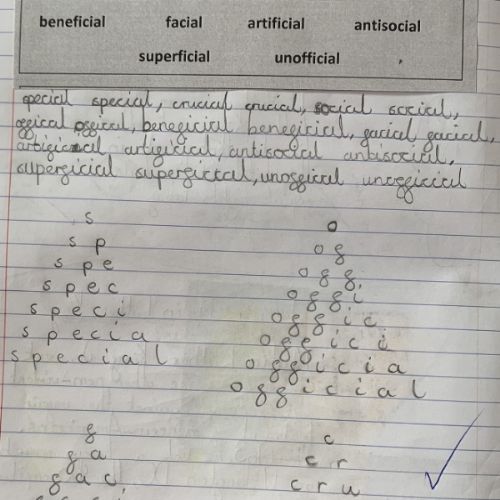 beneficial facial artificial antisocial
superficial unofficial
special special, crucial crucial, social social,
official official, beneficial beneficial, facial facial,
artificial artificial, antisocial antisocial,
superficial superficial, unofficial unofficial
s
s p
s p e
s p e c
s p e c i
s p e c i a
s p e c i a l
o
o f
o f f
o f f i
o f f i c
o f f i c i
o f f i c i a
o f f i c i a l
f
f a
f a c
c
c r
c r u